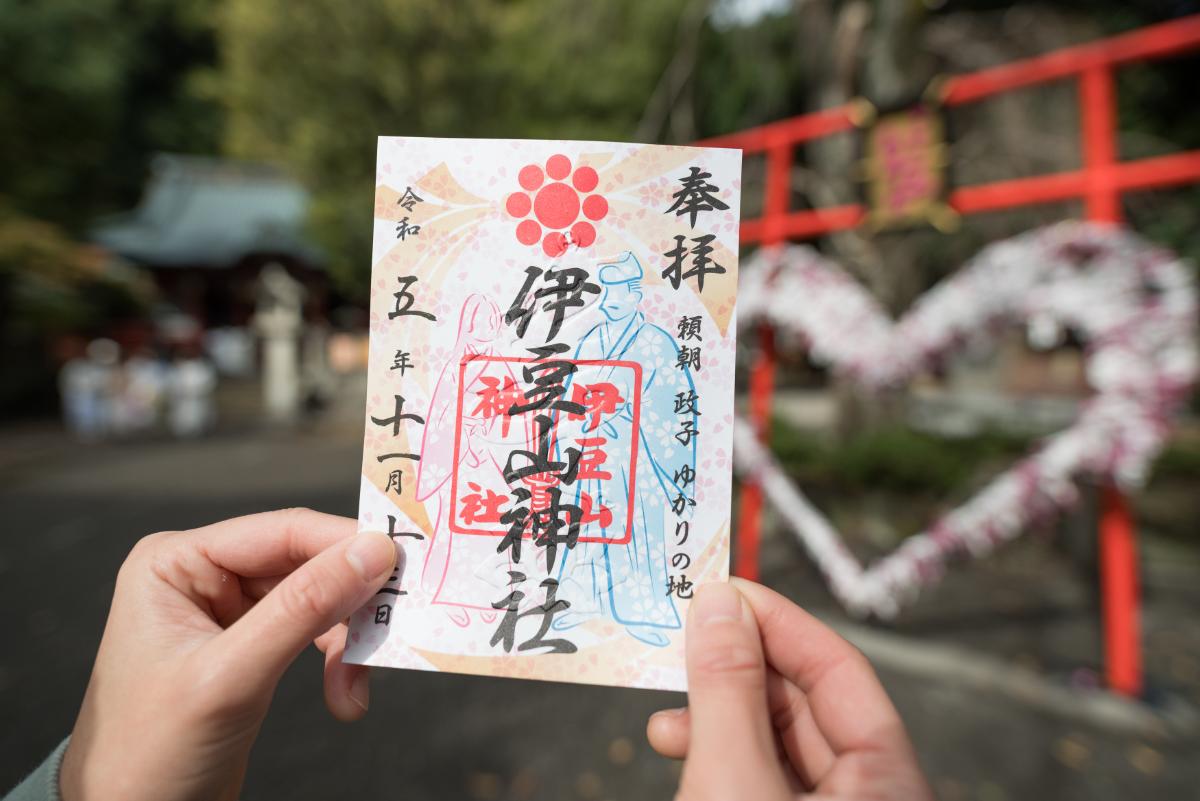 奉拝
頼朝 政子 ゆかりの地
伊豆山神社
伊豆山
神社
令和 五年 十一月 十三日